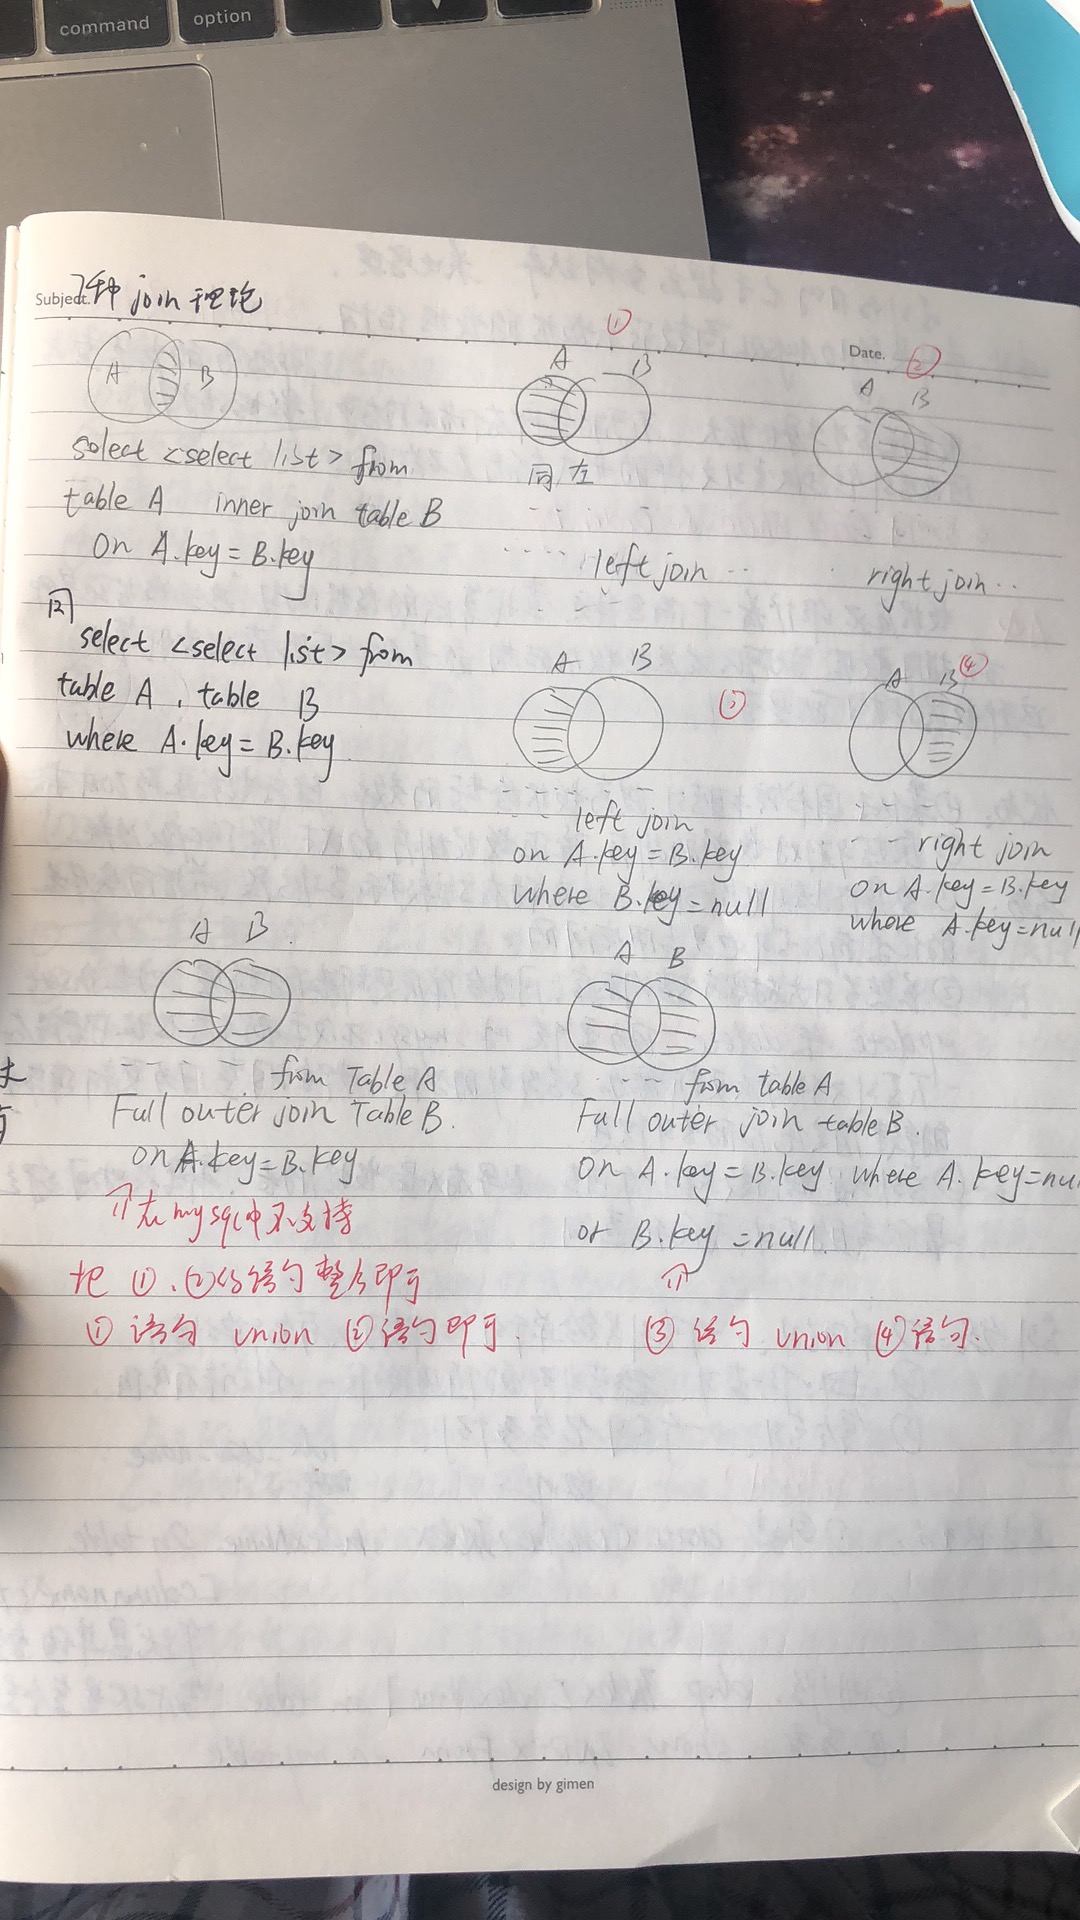 command
option
Subject.
7种 join 理论
Date.
A B
select <select list> from
table A inner join table B
on A.key = B.key
同
select <select list> from
table A , table B
where A.key = B.key
①
A B
同左
···· left join ··
②
A B
· right join ··
A B
③
left join
on A.key = B.key
where B.key = null
A B
④
right join
on A.key = B.key
where A.key = null
A B
from Table A
Full outer join Table B.
on A.key = B.key
⇑ 在 mysql 中不支持
把 ①、②的语句整合即可
① 语句 union ② 语句即可.
A B
from table A
Full outer join table B.
on A.key = B.key where A.key = nu
or B.key = null.
⇑
③ 语句 union ④ 语句.
design by gimen